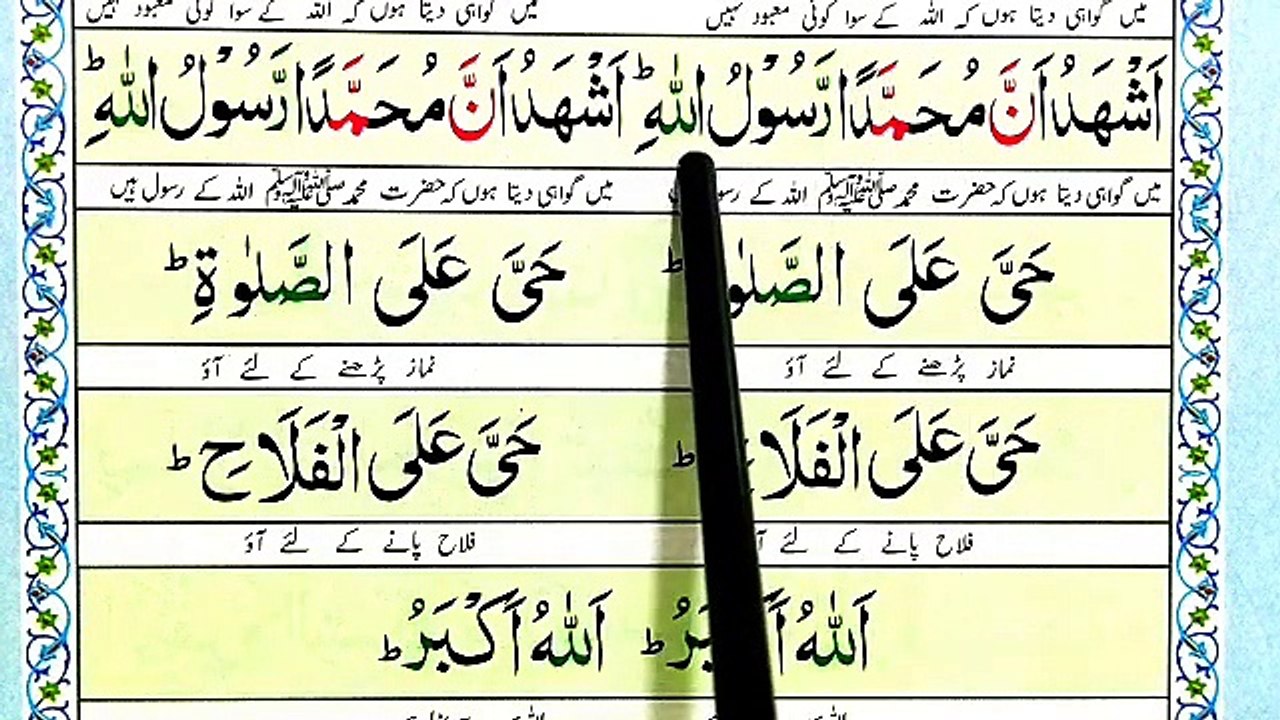 میں گواہی دیتا ہوں کہ اللہ کے سوا کوئی معبود نہیں میں گواہی دیتا ہوں کہ اللہ کے سوا کوئی معبود نہیں
اَشْهَدُ اَنَّ مُحَمَّدًا رَّسُوْلُ اللّٰهِ ؕ اَشْهَدُ اَنَّ مُحَمَّدًا رَّسُوْلُ اللّٰهِ ؕ
میں گواہی دیتا ہوں کہ حضرت محمد ﷺ اللہ کے میں گواہی دیتا ہوں کہ حضرت محمد ﷺ اللہ کے رسول ہیں
حَیَّ عَلَی ؕ حَیَّ عَلَی الصَّلٰوةِ ؕ
نماز پڑھنے کے لئے آؤ نماز پڑھنے کے لئے آؤ
حَیَّ عَلَی ؕ حَیَّ عَلَی الْفَلَاحِ ؕ
فلاح پانے کے لئے فلاح پانے کے لئے آؤ
اَللّٰهُ ؕ اَللّٰهُ اَكْبَرُ ؕ